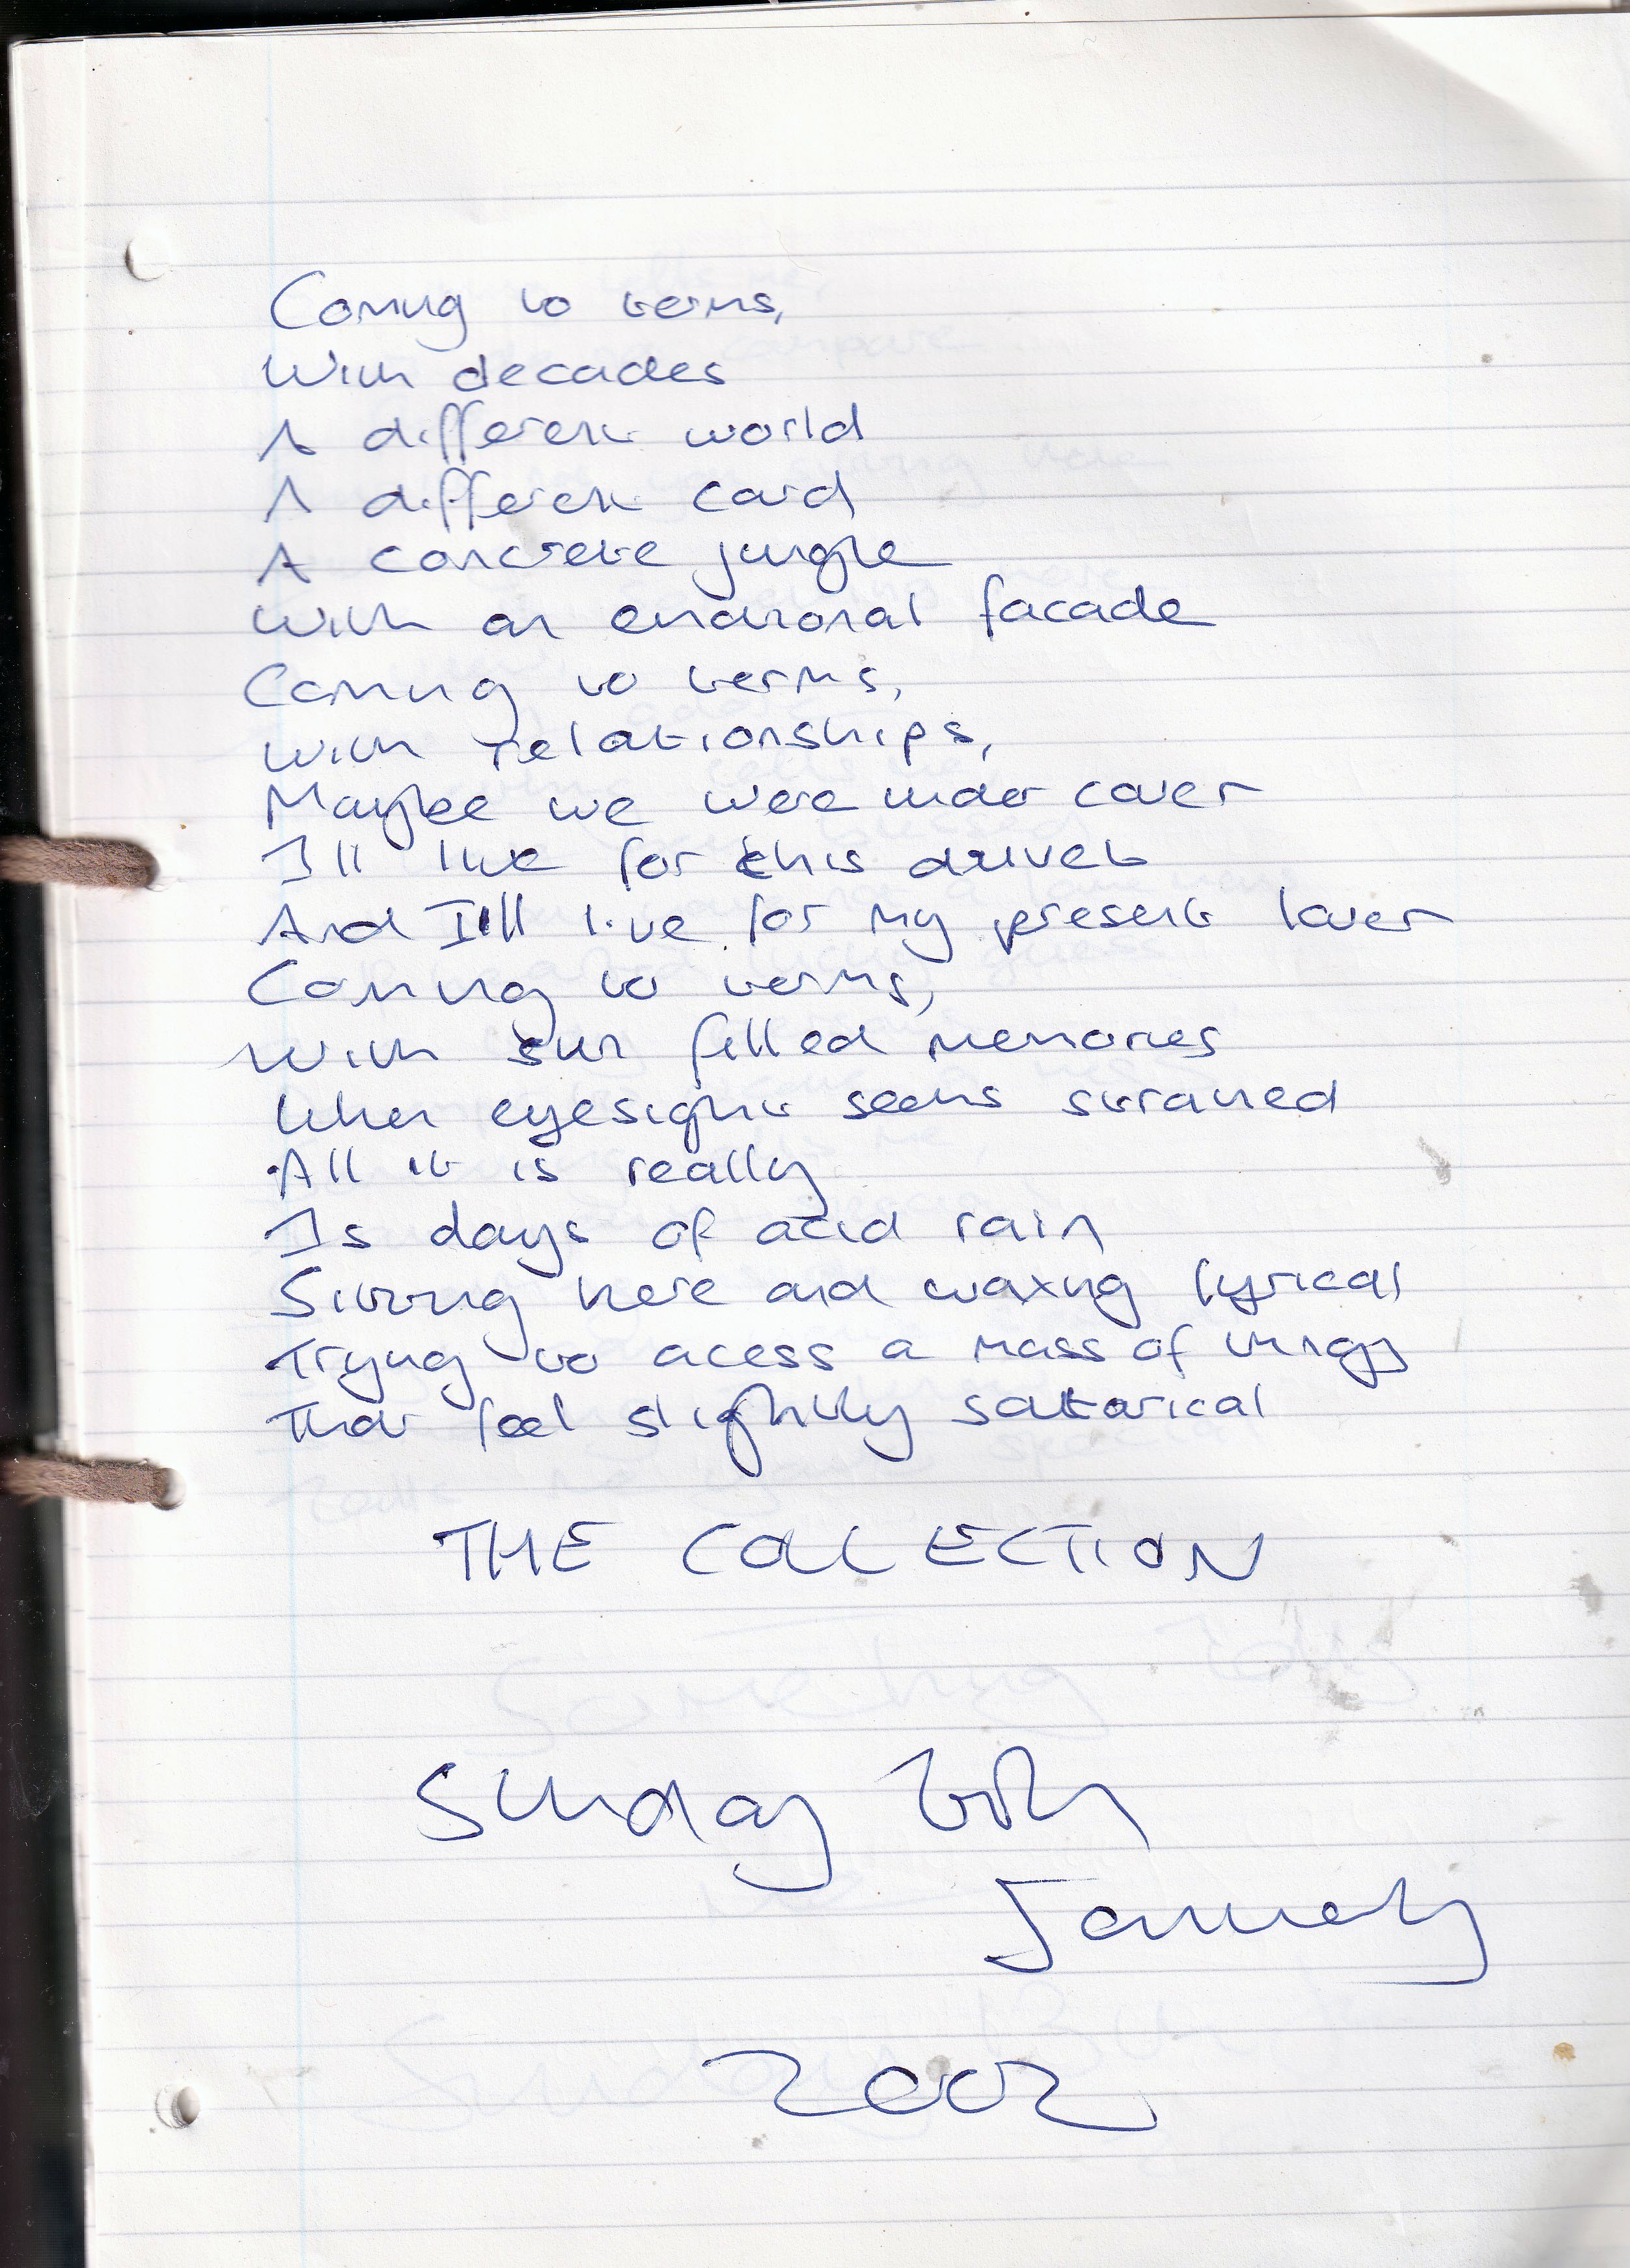 Coming to terms,
With decades
A different world
A different card
A concrete jungle
With an emotional facade
Coming to terms,
With relationships,
Maybee we were under cover
I'll live for this
And I'll live for my present lover
Coming to terms,
With sun filled memories
When eyesight seems strained
All it is really
Is days of acid rain
Sitting here and waxing lyrical
Trying to acess a mass of things
That feel slightly satarical
THE COLLECTION
Sunday 20th
January
2002